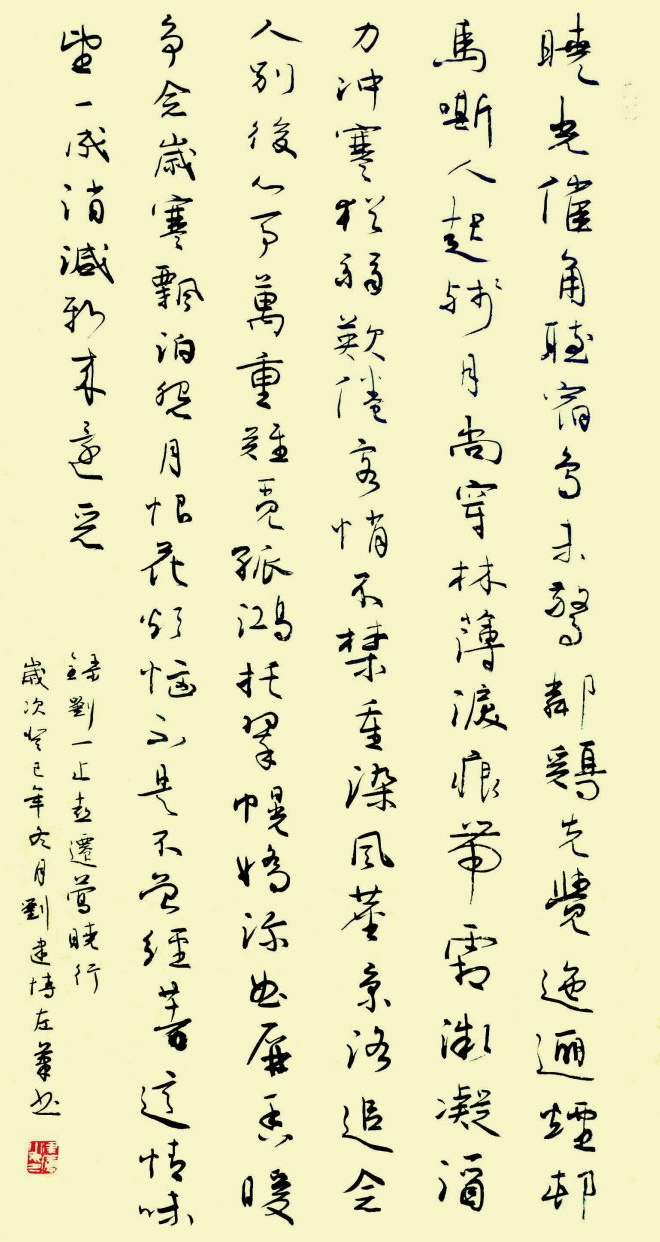 曉光催角聽宿鳥未驚鄰鷄先覺迤邐煙邨
馬嘶人起残月尚穿林薄淚痕帶霜微凝酒
力冲寒猶弱歎倦客悄不禁重染風塵京洛追念
人别後心事萬重難覓孤鴻托翠幌嬌深曲屏香暖
争念歲寒飄泊怨月恨花煩惱不是不曾經著這情味
望一成消減新來還惡
録劉一止喜遷鶯曉行
歲次癸巳年冬月劉建博左筆书